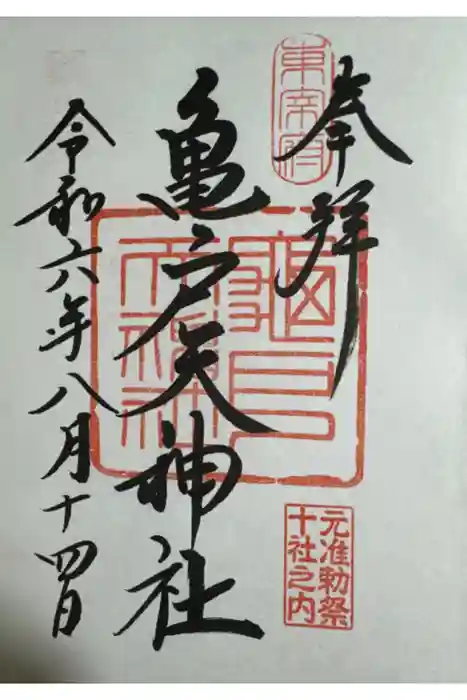 奉拝
東宰府
亀戸天神社
龜戸
天神社
令和六年八月十四日
元准勅祭
十社之内